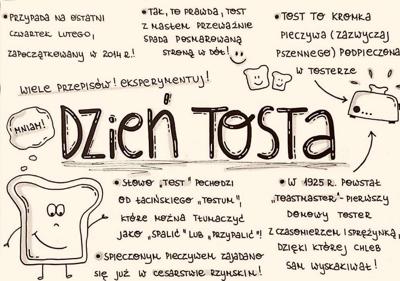 • PRZYPADA NA OSTATNI
CZWARTEK LUTEGO,
ZAPOCZĄTKOWANY W 2014 R.!
• TAK, TO PRAWDA, TOST
Z MASŁEM PRZEWAŻNIE
SPADA POSMAROWANĄ
STRONĄ W DÓŁ!
• TOST TO KROMKA
PIECZYWA (ZAZWYCZAJ
PSZENNEGO) PODPIECZONA
W TOSTERZE
WIELE PRZEPISÓW! EKSPERYMENTUJ!
MNIAM!
DZIEŃ TOSTA
• SŁOWO „TEST" POCHODZI
OD ŁACIŃSKIEGO „TOSTUM",
KTÓRE MOŻNA TŁUMACZYĆ
JAKO „SPALIĆ" LUB „PRZYPALIĆ"!
• SPIECZONYM PIECZYWEM ZAJADANO
SIĘ JUŻ W CESARSTWIE RZYMSKIM!
• W 1925 R. POWSTAŁ
„TOASTMASTER"-PIERWSZY
DOMOWY TOSTER
Z CZASOMIERZEM I SPRĘŻYNKĄ,
DZIĘKI KTÓREJ CHLEB
SAM WYSKAKIWAŁ!